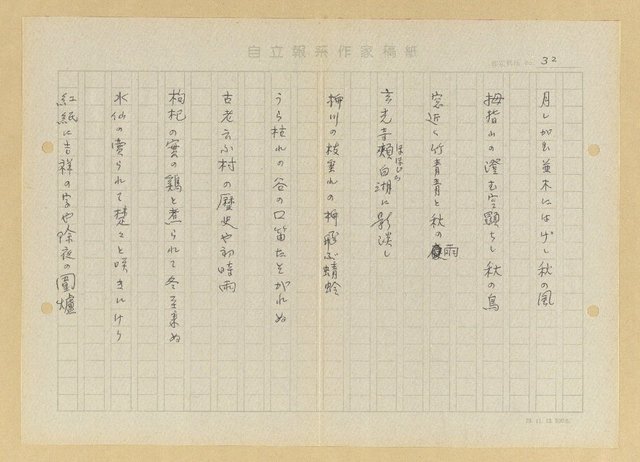 自立報系作家稿紙
32
秋の風
拇指山の澄む空 秋の鳥
窓近く竹青青と秋の雨
玄光寺頬白湖に影淡し
ほほじろ
柳川の枝垂れの柳飛ぶ蜻蛉
うら枯れの谷の口笛たそがれぬ
古老云ふ村の歴史や初時雨
枸杞の實の鶏と煮られて冬至来ぬ
水仙の賣られて楚々と咲きにけり
紅紙に吉祥の字や除夜の圍爐